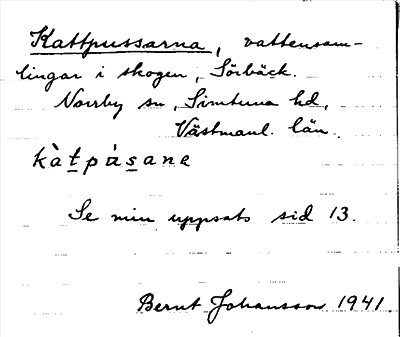 Kattpussarna, vattensam-
lingar i skogen, Sörbäck.
Norrby sn, Simtuna hd,
Västmanl. län.
kàtpásane
Se min uppsats sid 13.
Bernt Johansson 1941